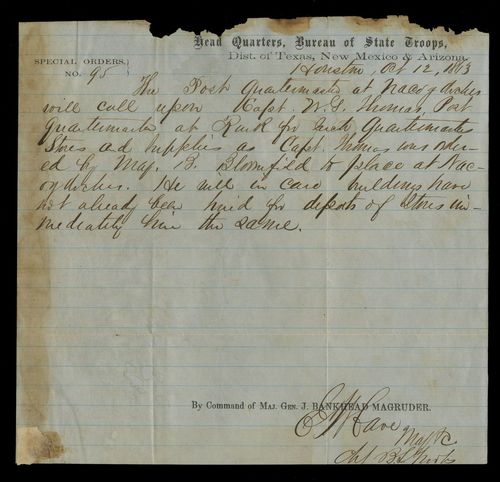 Head Quarters, Bureau of State Troops,
Dist. of Texas, New Mexico & Arizona.
SPECIAL ORDERS,
NO. 95
Houston, Oct 12, 1863
The Post Quartermaster at Nacogdoches
will call upon Capt. W. S. Thomas Post
Quartermaster at Rusk for such Quartermaster
Stores and supplies as Capt. Thomas was order-
ed by Maj. B. Bloomfield to place at Nac-
ogdoches. He will in case buildings have
not already been hired for deposits of stores im-
mediately hire the same.
By Command of MAJ. GEN. J. BANKHEAD MAGRUDER.
Cave
Maj &c